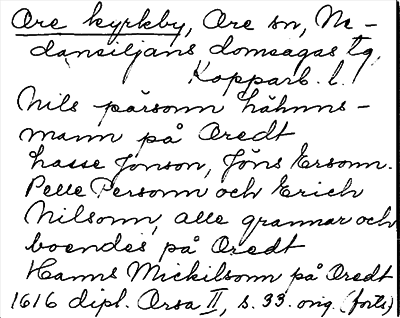 Ore kyrkby, Ore sn, Ne-
dansiljans domsagas tg,
Kopparb. l.
Nils pärsonn håhnns-
mann på Oredt
hasse Jonson, Jöns Ersonn.
Pelle Personn och Erich
Nilsonn, alle grannar och
boendes på Oredt
Hanns Mickilsonn på Oredt
1616 dipl. Orsa II, s. 33. orig. (forts)